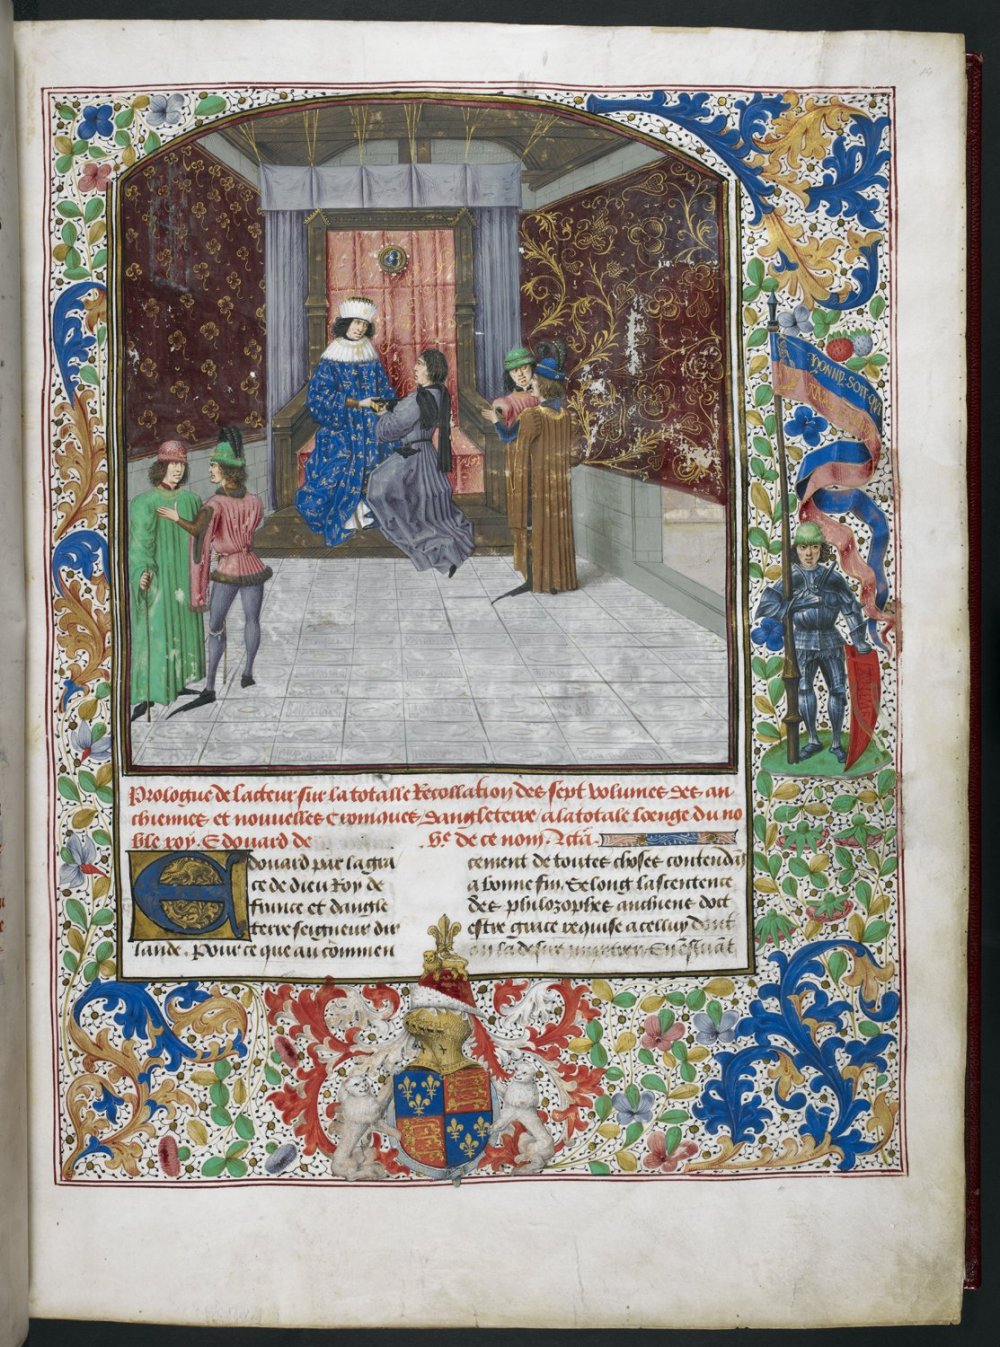 HONNY SOIT QUI
Prologue de lacteur sur la totalle Recollation des sept volumes des an-
chiennes et nouvelles Croniques dangleterre a la totale loenge du no
ble roy Edouard de
Ve de ce nom
Edouard par la gra
ce de dieu Roy de
france et dangle
terre seigneur dir
lande. Pour ce que au commen
cement de toutes choses contendans
a bonne fin, Selong la sentence
des philozophes anchiens doit
estre grace requise a celluy dont